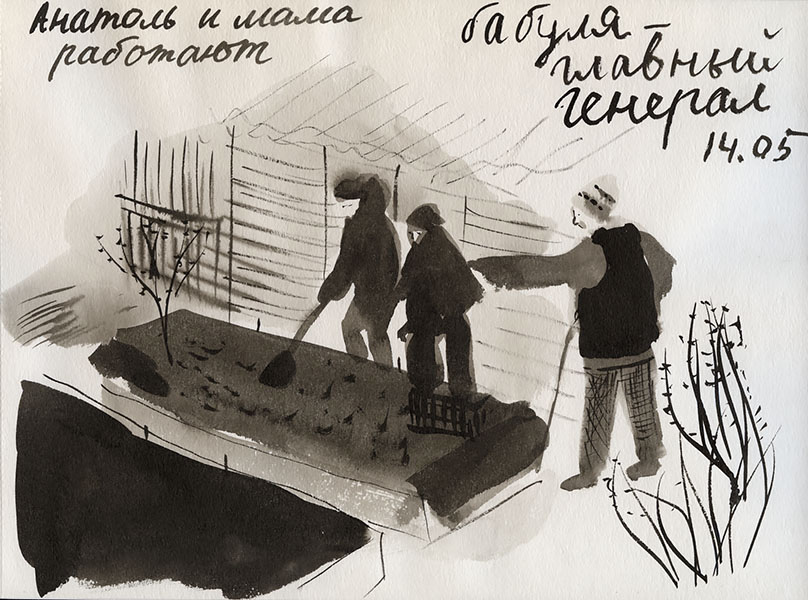 Анатоль и мама
работают
бабуля –
главный
генерал
14.05